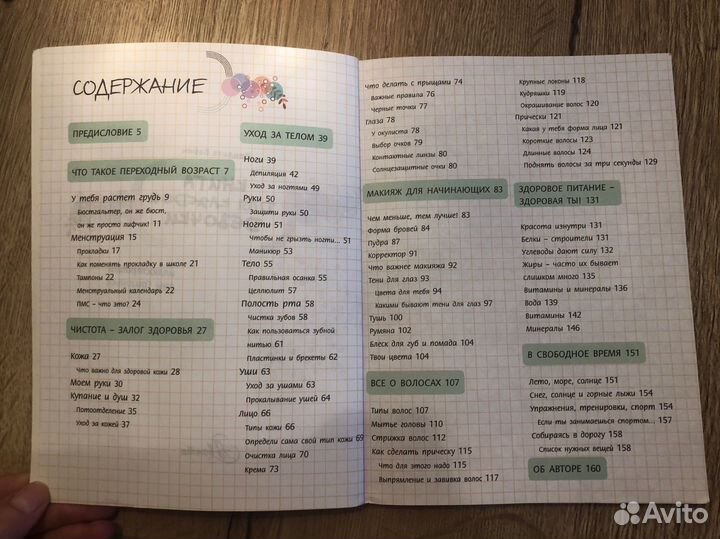 СОДЕРЖАНИЕ
ПРЕДИСЛОВИЕ 5
ЧТО ТАКОЕ ПЕРЕХОДНЫЙ ВОЗРАСТ 7
У тебя растет грудь 9
Бюстгальтер, он же бюст,
он же просто лифчик! 11
Менструация 15
Прокладки 17
Как поменять прокладку в школе 21
Тампоны 22
Менструальный календарь 22
ПМС – что это? 24
ЧИСТОТА – ЗАЛОГ ЗДОРОВЬЯ 27
Кожа 27
Что важно для здоровой кожи 28
Моем руки 30
Купание и душ 32
Потоотделение 35
Уход за кожей 37
УХОД ЗА ТЕЛОМ 39
Ноги 39
Депиляция 42
Уход за ногтями 49
Руки 50
Защити руки 50
Ногти 51
Чтобы не грызть ногти... 51
Маникюр 53
Тело 55
Правильная осанка 55
Целлюлит 57
Полость рта 58
Чистка зубов 58
Как пользоваться зубной
нитью 61
Пластинки и брекеты 62
Уши 63
Уход за ушами 63
Прокалывание ушей 64
Лицо 66
Типы кожи 66
Определи сама свой тип кожи 69
Очистка лица 70
Крема 73
Что делать с прыщами 74
Важные правила 76
Черные точки 77
Глаза 78
У окулиста 78
Выбор очков 79
Контактные линзы 80
Солнцезащитные очки 80
МАКИЯЖ ДЛЯ НАЧИНАЮЩИХ 83
Чем меньше, тем лучше! 83
Форма бровей 84
Пудра 87
Корректор 91
Что важнее макияжа 92
Тени для глаз 93
Цвета для тебя 94
Какими бывают тени для глаз 97
Тушь 100
Румяна 102
Блеск для губ и помада 104
Твои цвета 104
ВСЕ О ВОЛОСАХ 107
Типы волос 107
Мытье головы 110
Стрижка волос 112
Как сделать прическу 115
Что для этого надо 115
Выпрямление и завивка волос 117
Крупные локоны 118
Кудряшки 119
Окрашивание волос 120
Прически 121
Какая у тебя форма лица 121
Короткие волосы 123
Длинные волосы 124
Поднять волосы за три секунды 129
ЗДОРОВОЕ ПИТАНИЕ –
ЗДОРОВАЯ ТЫ! 131
Красота изнутри 131
Белки – строители 131
Углеводы дают силу 132
Жиры – часто их бывает
слишком много 135
Витамины и минералы 136
Вода 139
Витамины 142
Минералы 146
В СВОБОДНОЕ ВРЕМЯ 151
Лето, море, солнце 151
Снег, солнце и горные лыжи 154
Упражнения, тренировки, спорт 154
Если ты занимаешься спортом... 157
Собираясь в дорогу 158
Список нужных вещей 158
ОБ АВТОРЕ 160
Avito